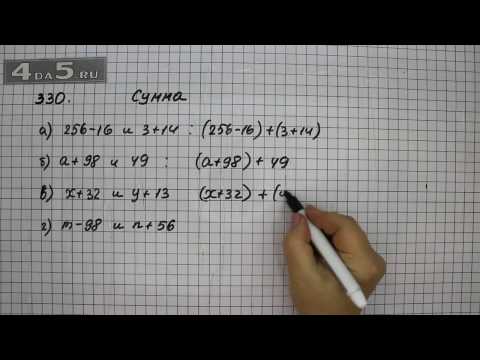 4 DA 5.RU
330. Сумма
а) 256-16 и 3+14 : (256-16)+(3+14)
б) a+98 и 49 : (a+98) + 49
в) x+32 и y+13 (x+32) + (
г) m-98 и n+56